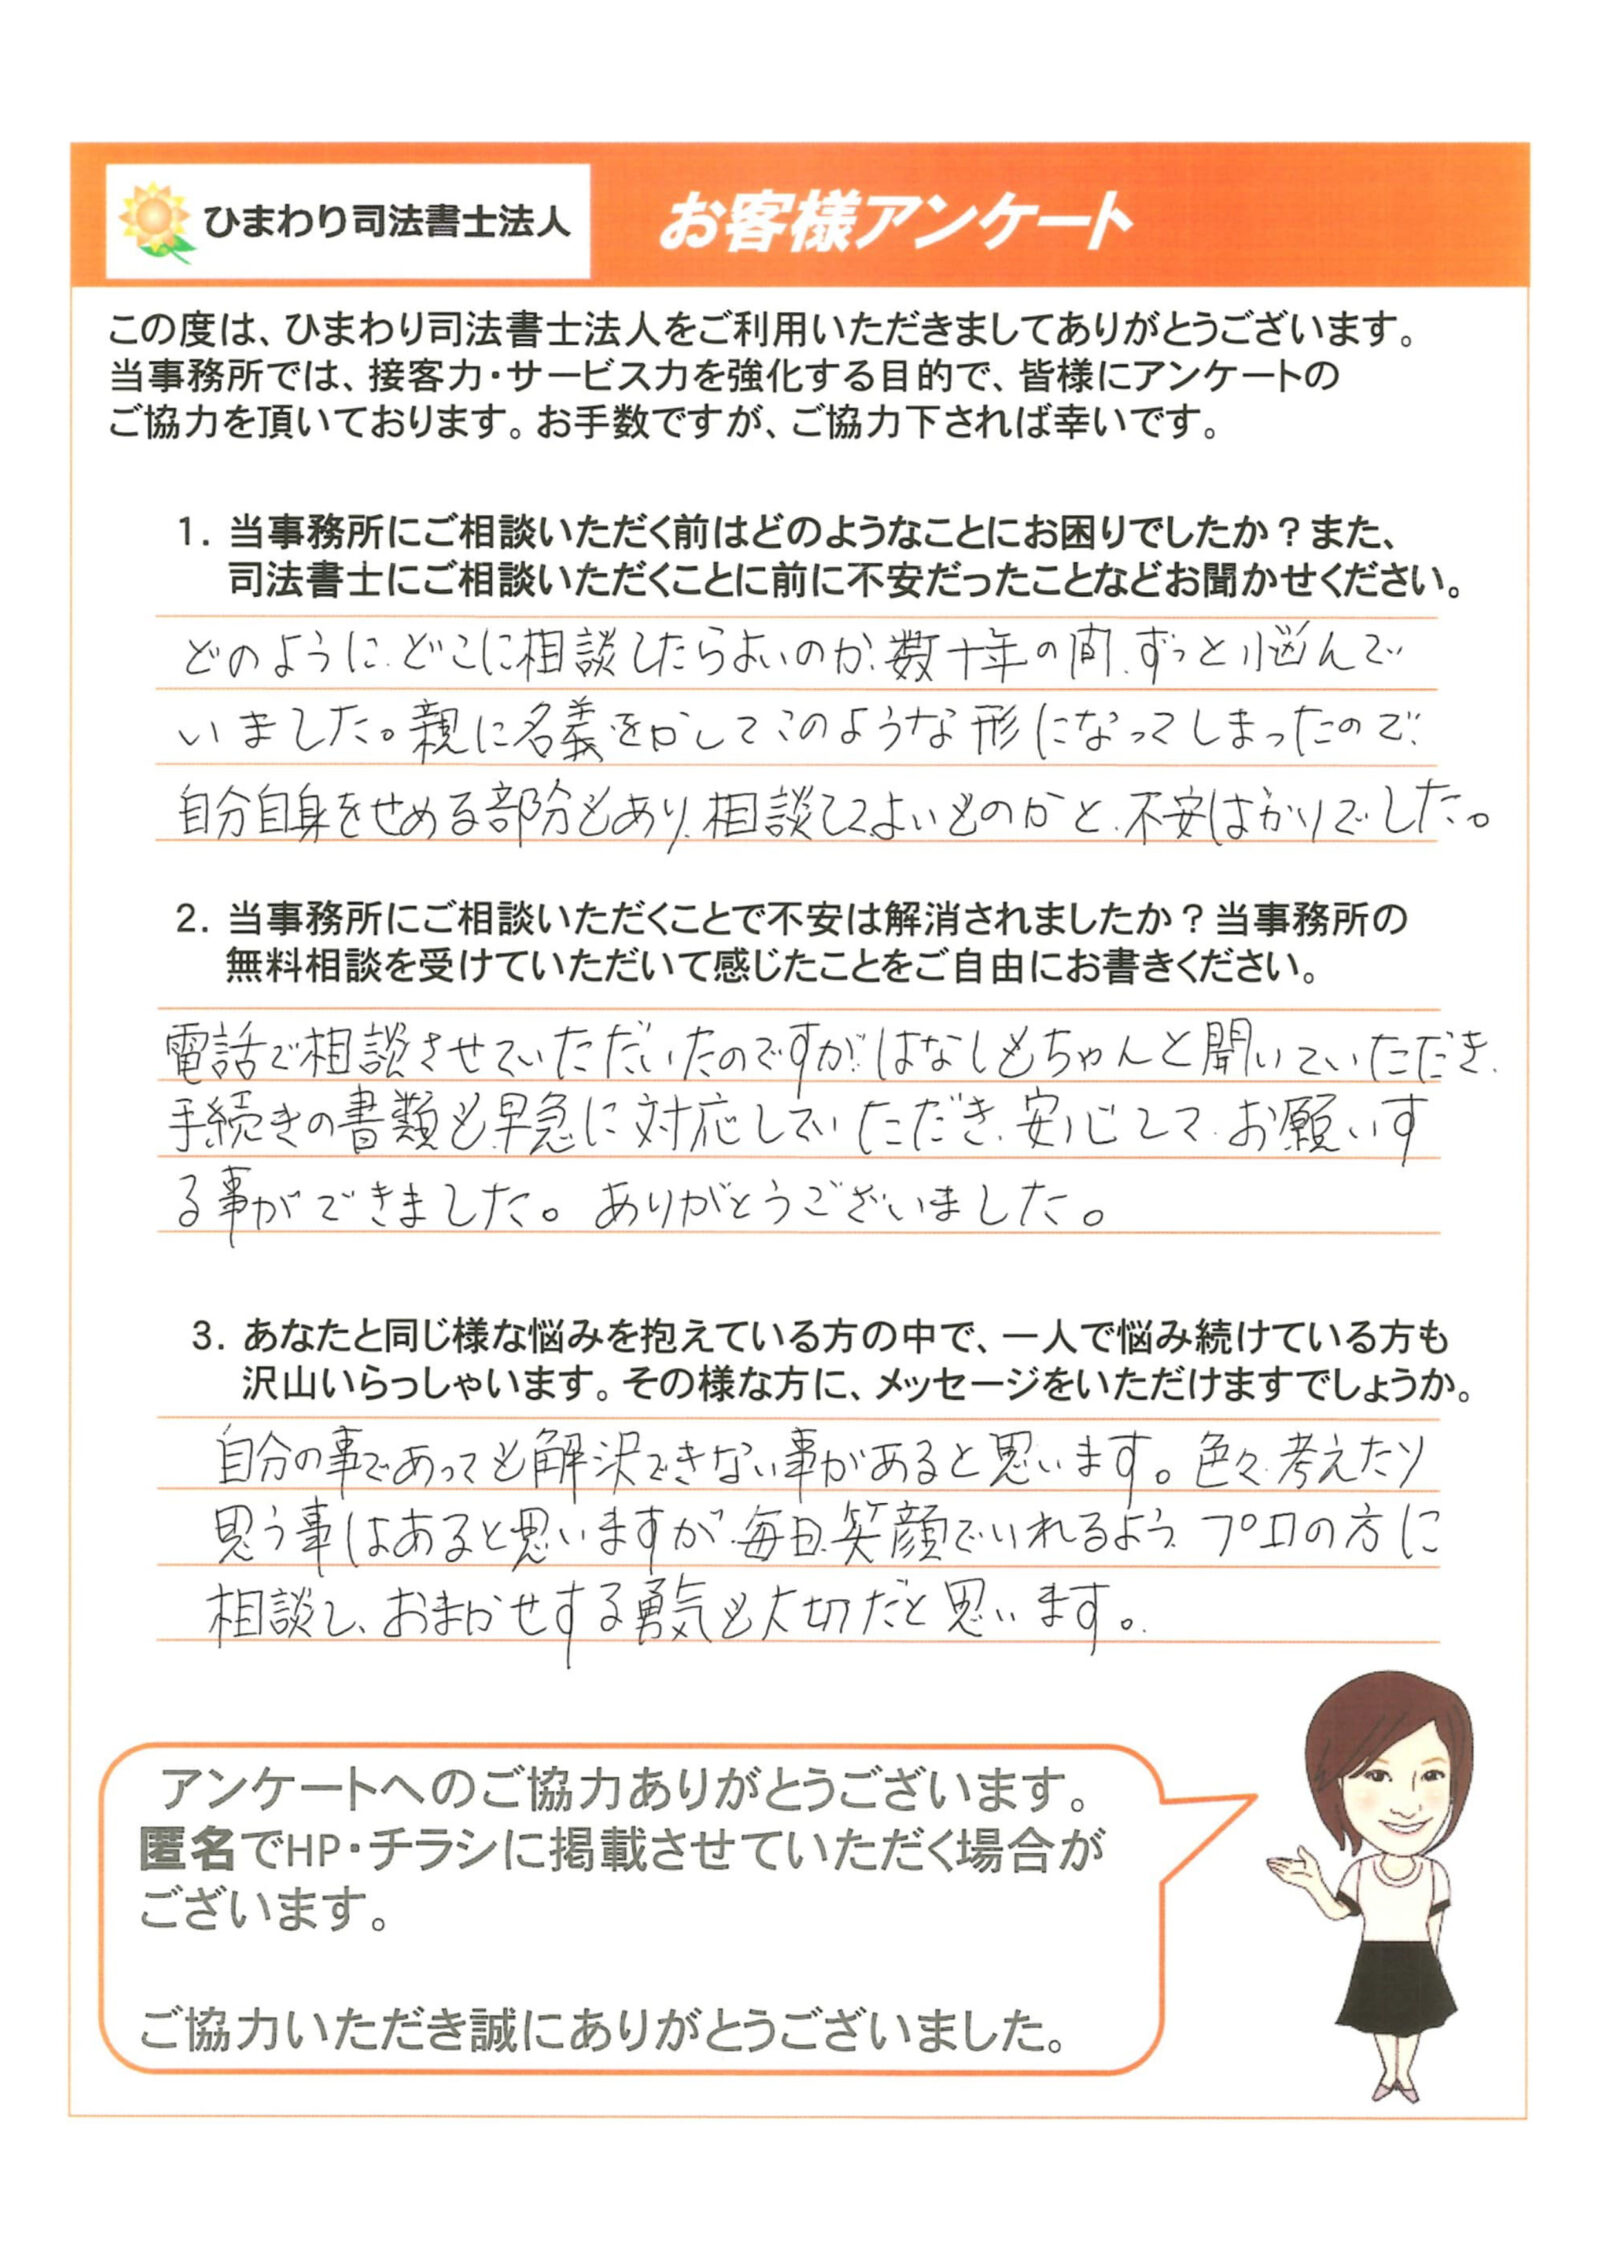 ひまわり司法書士法人
お客様アンケート
この度は、ひまわり司法書士法人をご利用いただきましてありがとうございます。
当事務所では、接客力・サービス力を強化する目的で、皆様にアンケートの
ご協力を頂いております。お手数ですが、ご協力下されば幸いです。
1. 当事務所にご相談いただく前はどのようなことにお困りでしたか？また、
司法書士にご相談いただくことに前に不安だったことなどお聞かせください。
どのように、どこに相談したらよいのか、数十年の間、ずっと悩んで
いました。親に名義をかしてこのような形になってしまったので、
自分自身をせめる部分もあり、相談してよいものかと、不安ばかりでした。
2. 当事務所にご相談いただくことで不安は解消されましたか？当事務所の
無料相談を受けていただいて感じたことをご自由にお書きください。
電話で相談させていただいたのですが、はなしもちゃんと聞いていただき、
手続きの書類も、早急に対応していただき、安心して、お願いす
る事ができました。ありがとうございました。
3. あなたと同じ様な悩みを抱えている方の中で、一人で悩み続けている方も
沢山いらっしゃいます。その様な方に、メッセージをいただけますでしょうか。
自分の事であっても解決できない事があると思います。色々、考えたり
思う事はあると思いますが、毎日、笑顔でいれるよう、プロの方に
相談し、おまかせする勇気も大切だと思います。
アンケートへのご協力ありがとうございます。
匿名でHP・チラシに掲載させていただく場合が
ございます。
ご協力いただき誠にありがとうございました。